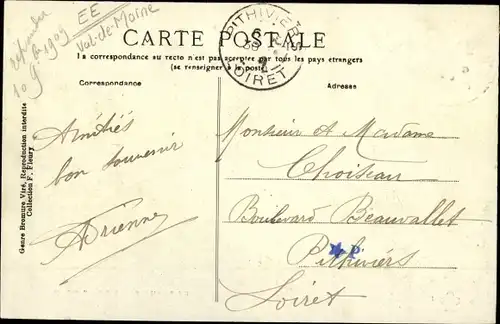 EE
Val-de-Marne
1909
PITHIVIERS
LOIRET
CARTE POSTALE
La correspondance au recto n'est pas acceptée par tous les pays étrangers
(se renseigner à la poste)
Correspondance
Adresse
Amitiés
bon souvenir
Adrienne
Monsieur A Madame
Choiseau
Boulevard Beauvallet
Pithiviers
Loiret
P
Genre Bromure Viré, Reproduction interdite
Collection F. Fleury